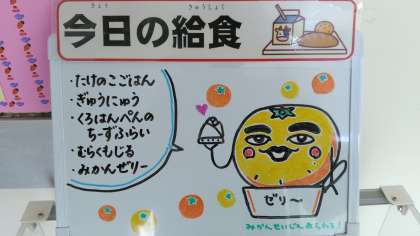 きょう きゅうしょく
今日の給食
・たけのこごはん
・ぎゅうにゅう
・くろはんぺんの
ちーずふらい
・むらくもじる
・みかんゼリー
ゼリ〜
みかんせいじんあらわる!